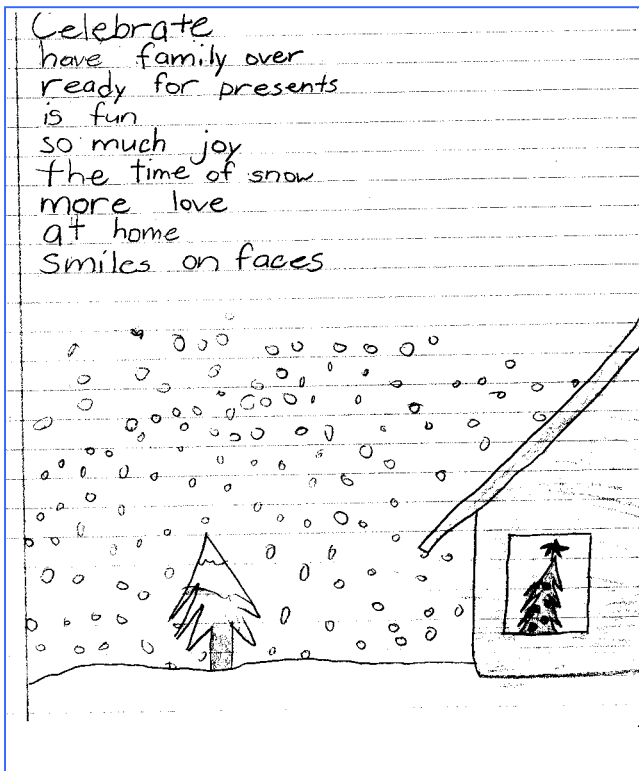 Celebrate
have family over
ready for presents
is fun
so much joy
the time of snow
more love
at home
Smiles on faces